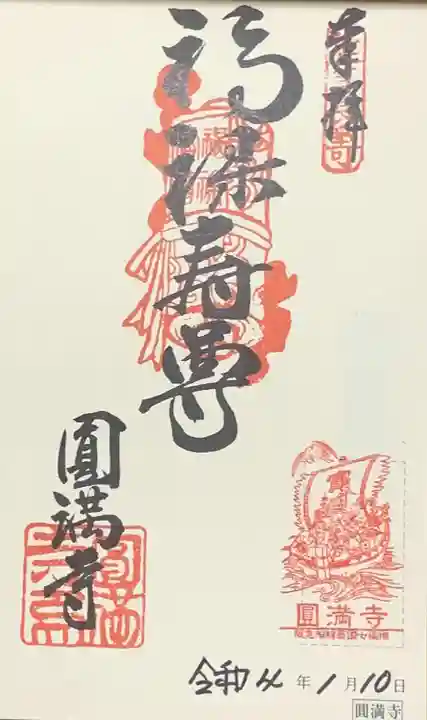 奉拝
福禄寿尊
圓満寺
寳
圓満寺
令和4年1月10日
圓満寺